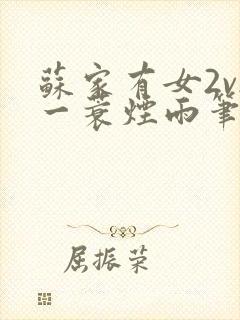 蘇家有女2v
一蓑煙雨筆
屈振荣